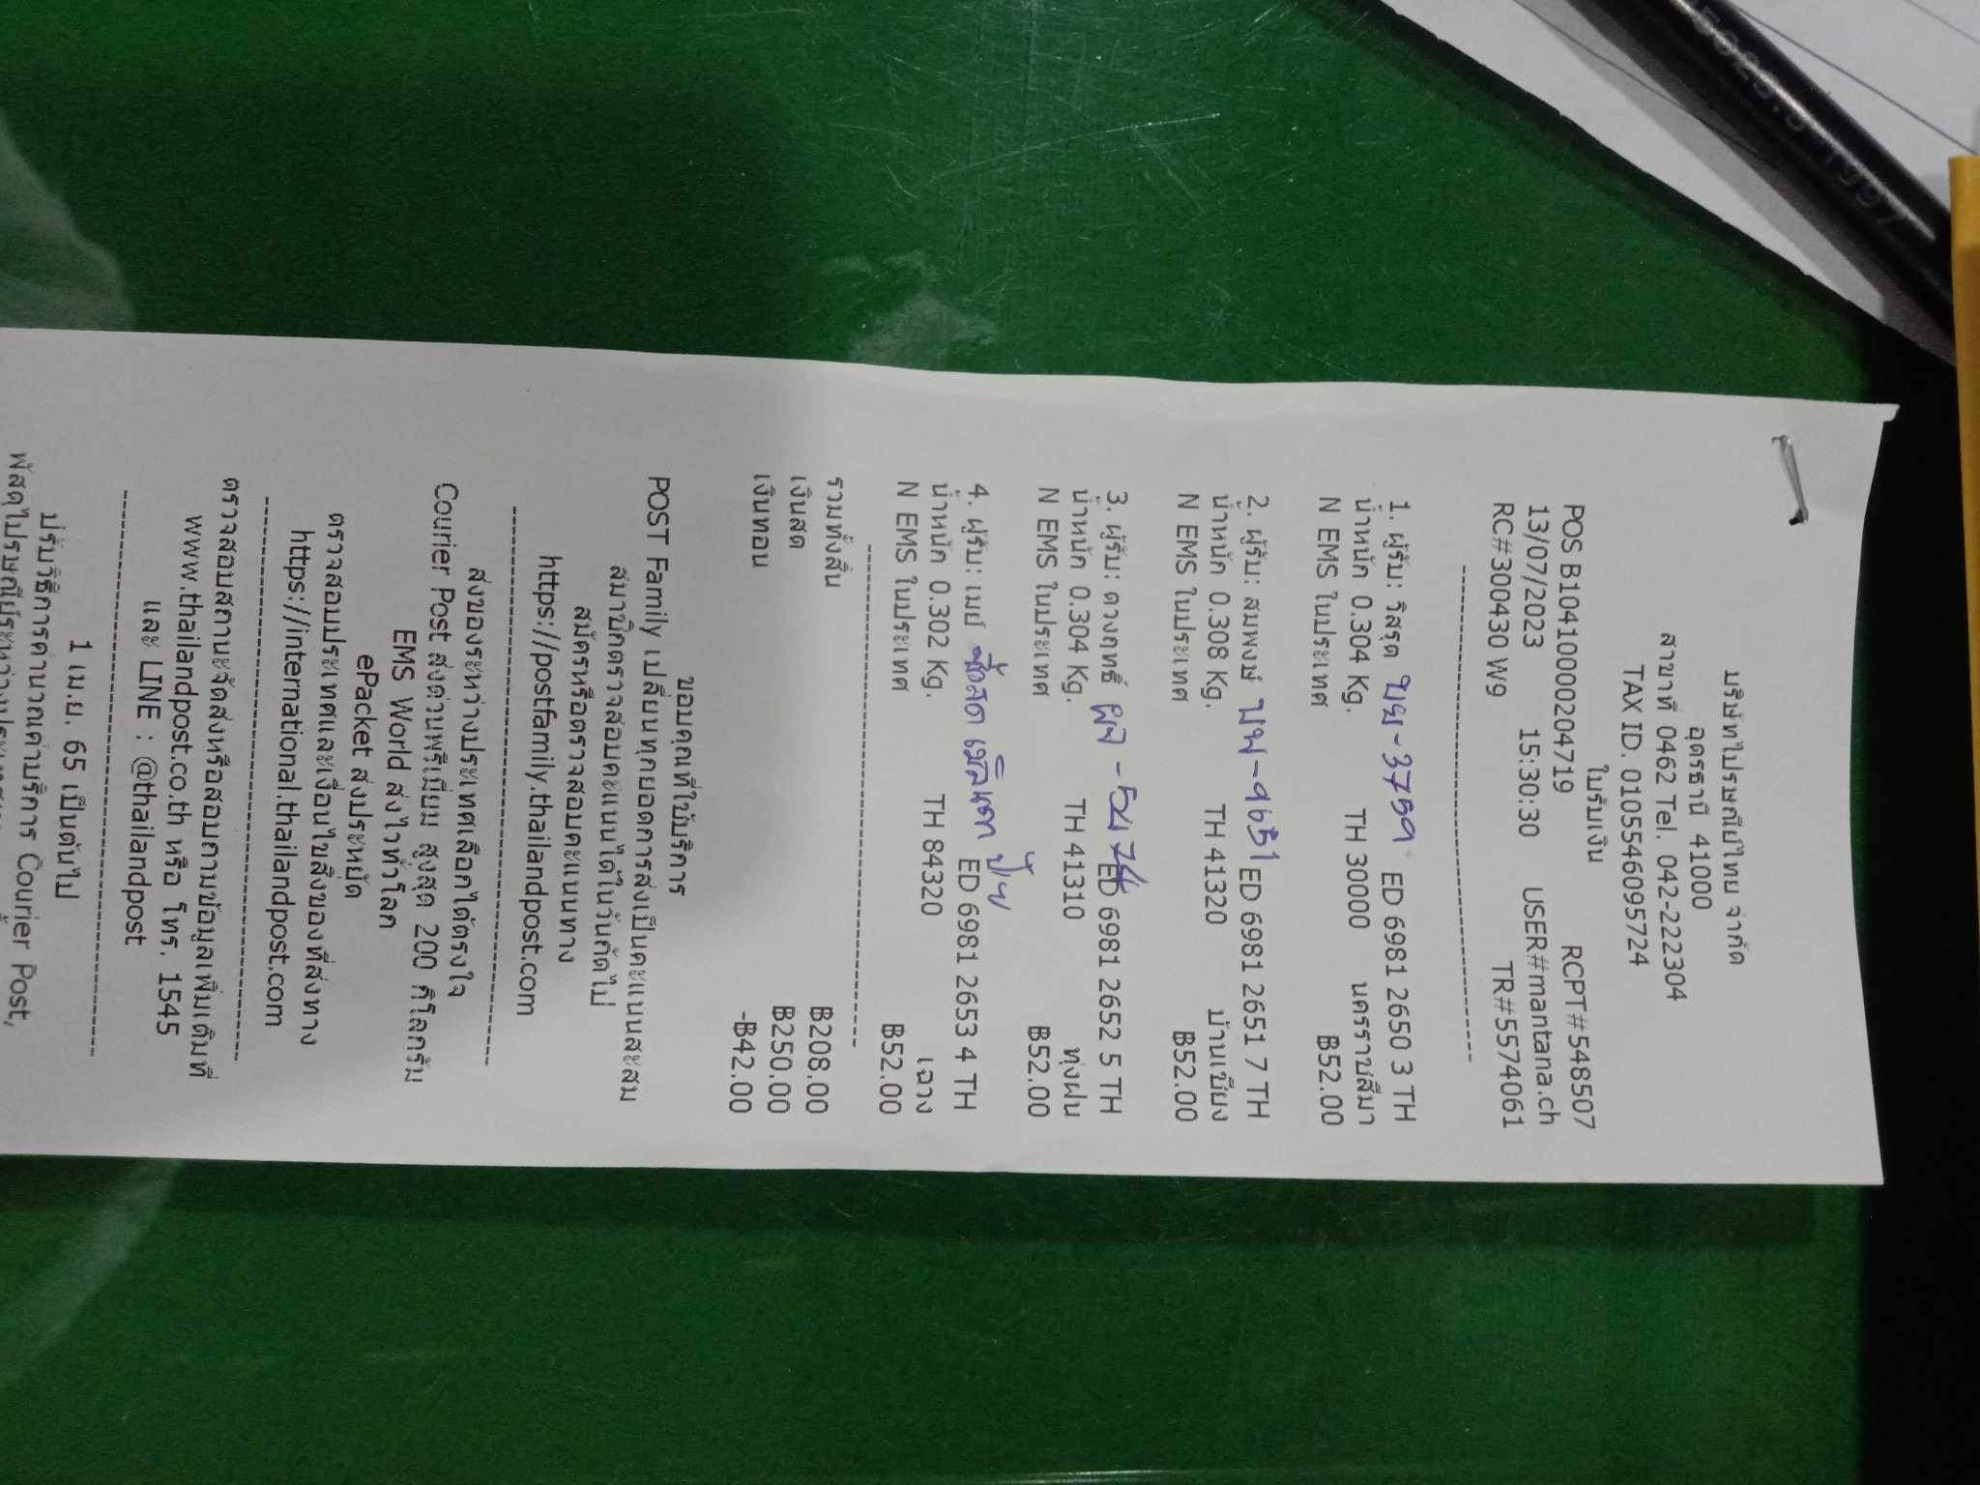 บริษัทไปรษณีย์ไทย จำกัด
อุดรธานี 41000
สาขาที่ 0462 Tel. 042-222304
TAX ID. 0105546095724
ใบรับเงิน
POS B104100002047​19 RCPT#548507
13/07/2023 15:30:30 USER#mantana.ch
RC#300430 W9 TR#5574061
1. ผู้รับ: วิสรุต ขบ-3759 ED 6981 2650 3 TH
น้ำหนัก 0.304 Kg. TH 30000 นครราชสีมา
N EMS ในประเทศ ฿52.00
2. ผู้รับ: สมพงษ์ บพ-9651 ED 6981 2651 7 TH
น้ำหนัก 0.308 Kg. TH 41320 บ้านเชียง
N EMS ในประเทศ ฿52.00
3. ผู้รับ: ดวงฤทธิ์ ED 6981 2652 5 TH
น้ำหนัก 0.304 Kg. TH 41310 ทุ่งฝน
N EMS ในประเทศ ฿52.00
4. ผู้รับ: เมย์ ED 6981 2653 4 TH
น้ำหนัก 0.302 Kg. TH 84320 เฉวง
N EMS ในประเทศ ฿52.00
รวมทั้งสิ้น ฿208.00
เงินสด ฿250.00
เงินทอน -฿42.00
ขอบคุณที่ใช้บริการ
POST Family เปลี่ยนทุกยอดการส่งเป็นคะแนนสะสม
สมาชิกตรวจสอบคะแนนได้ในวันถัดไป
สมัครหรือตรวจสอบคะแนนทาง
https://postfamily.thailandpost.com
ส่งของระหว่างประเทศเลือกได้ตรงใจ
Courier Post ส่งด่วนพรีเมี่ยม สูงสุด 200 กิโลกรัม
EMS World ส่งไวทั่วโลก
ePacket ส่งประหยัด
ตรวจสอบประเทศและเงื่อนไขสิ่งของที่ส่งทาง
https://international.thailandpost.com
ตรวจสอบสถานะจัดส่งหรือสอบถามข้อมูลเพิ่มเติมที่
www.thailandpost.co.th หรือ โทร. 1545
และ LINE : @thailandpost
1 เม.ย. 65 เป็นต้นไป
ปรับวิธีการคำนวณค่าบริการ Courier Post,